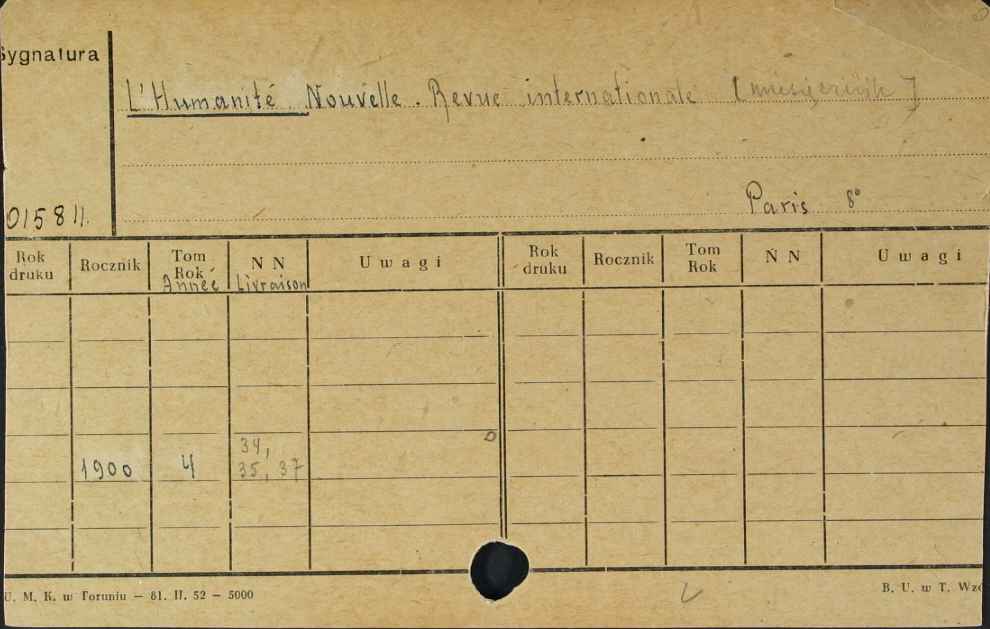 Sygnatura
L'Humanité Nouvelle. Revue internationale [miesięcznik]
Paris 8°
0158 II.
Rok druku Rocznik Tom Rok Année N N Livraison Uwagi Rok druku Rocznik Tom Rok N N Uwagi
34,
1900 4 35, 37
U. M. K. w Toruniu — 81. II. 52 — 5000 B. U. w T.